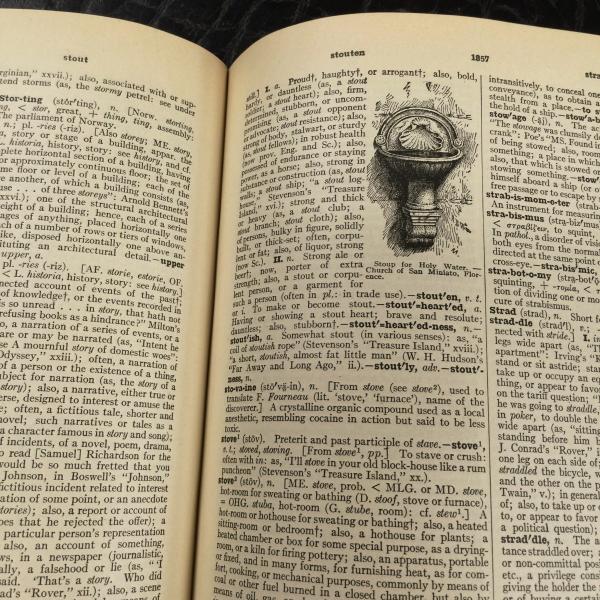 stout
rginian," xxvii.); also, associated with or sup-
end storms (as, the stormy petrel: see under
Stor-ting (stôr′tiŋ), n. [Norw. storting,
ng, < stor, great, + thing, ting, assembly.]
The parliament of Norway.
n.; pl. -ries (-riz). [Also storey; ME. story,
L. historia, history, story: see history, and cf.
ory or stage of a building, appar.
omplete horizontal section of a building, having
or approximately continuous floor; the set of
me floor or level of a building; each of the
e another, of which a building consists (as,
use . . . of three storeys": Arnold Bennett's
xxvi.); one of the structural architectural
eight of a building; hence, each of a series
ages of anything, placed horizontally one
ch of a number of rows or tiers of windows,
ike, disposed horizontally one above an-
tituting an architectural detail.—upper
upper, a.
pl. -ries (-riz). [AF. storie, estorie, OF.
< L. historia, history, story: see history.]
nected account of events of the past†;
of knowledge†, or the events recorded in
s so unread . . . in story, that hath not
refusing books as a hindrance?" Milton's
, a narration of a series of events, or a
are or may be narrated (as, "Intent he
se A mournful story of domestic woes":
Odyssey," xxiii.); often, a narration of
of a person or the existence of a thing,
ubject for narration (as, the story of a
story); also, a narrative, either true or
erse, designed to interest or amuse the
e; often, a fictitious tale, shorter and
novel; such narratives or tales as a
character famous in story and song);
of incidents, of a novel, poem, drama,
to read [Samuel] Richardson for the
would be so much fretted that you
Johnson, in Boswell's "Johnson,"
fictitious incident related to interest
ation of some point, or an anecdote
stories); also, a report or account of
oes that he rejected the offer); a
particular person's representation
also, an account of something,
ws, in a newspaper (journalistic,
ally, a falsehood or lie (as, "'I
said. 'That's a story. Who did
ad's "Rover," xii.); also, a scene
stouten
1857
I. a. Proud†, haughty†, or arrogant†; also, bold,
hardy, or dauntless (as, a stout
a stout heart); also, firm,
stubborn, or uncom-
a stout opponent
or advocate; stout resistance); also,
strong of body, stalwart, or sturdy
(as, stout fellows); in robust health
(now prov. Eng. and Sc.); also,
possessed of endurance or staying
power, as a horse; also, strong in
substance or construction (as, stout
walls; a stout ship; "a stout log-
house," Stevenson's "Treasure
Island," xvi.); strong and thick
or heavy (as, a stout club; a
stout branch; stout cloth); also,
of persons, bulky in figure, solidly
built, or thick-set; often, corpu-
lent or fat; also, of liquor, strong
(now Sc.). II. n. Strong ale or
beer†; now, porter of extra
strength; also, a stout or corpu-
lent person, or a garment for
such a person (often in pl.: in trade use).—stout′en, v. t.
or i. To make or become stout.—stout″-heart′ed, a.
Having or showing a stout heart; brave and resolute;
dauntless; also, stubborn†.—stout″-heart′ed-ness, n.—
stout′ish, a. Somewhat stout (in various senses): as, "a
coil of stoutish rope" (Stevenson's "Treasure Island," xviii.);
"a short, stoutish, almost fat little man" (W. H. Hudson's
"Far Away and Long Ago," ii.).—stout′ly, adv.—stout′-
ness, n.
Stoup for Holy Water.—
Church of San Miniato, Flor-
ence.
sto-va-ine (stō′vä-in), n. [From stove (see stove²), used to
translate F. Fourneau (lit. 'stove,' 'furnace'), name of the
discoverer.] A crystalline organic compound used as a local
anesthetic, resembling cocaine in action but said to be less
toxic.
stove¹ (stōv). Preterit and past participle of stave.—stove¹,
v. t.; stoved, stoving. [From stove¹, pp.] To stave or crush:
often with in: as, "I'll stove in your old block-house like a rum
puncheon" (Stevenson's "Treasure Island," xx.).
stove² (stōv), n. [ME. stove, prob. < MLG. or MD. stove,
hot-room for sweating or bathing (D. stoof, stove or furnace),
= OHG. stuba, hot-room (G. stube, room): cf. stew¹.] A
hot-room or hothouse for sweating or bathing†; also, a heated
sitting-room or bedroom†; also, a hothouse for plants; a
heated chamber or box for some special purpose, as a drying-
room, or a kiln for firing pottery; also, an apparatus, portable
or fixed, and in many forms, for furnishing heat, as for com-
fort, cooking, or mechanical purposes, commonly by means of
coal or other fuel burned in a closed chamber, but also by
means of oil, gas,
stra
intransitively, to conceal one
conveyance), as to obtain a
stealth from a place.—to st
the hold of a ship.—stow′a-b
stow′age (-āj), n. The ac
"The stowage was clumsily do
crank": Poe's "MS. Found in
of being stowed; also, room
something; a place in which
also, that which is stowed or
stowing something.—stow′
himself aboard a ship (or
free passage or escape by
strab-is-mom-e-ter (strab-
An instrument for measurin
stra-bis-mus (stra-biz′mu
< στραβίζειν, to squint,
In pathol., a disorder of visi
both eyes from the normal
directed at the same point
cross-eye.—stra-bis′mic,
stra-bot-o-my (stra-bot′o-
squinting, + -τομία, <
eration of dividing one or
cure of strabismus.
Strad (strad), n. Short fo
strad-dle (strad′l), v.;
nected with stride.] I.
legs wide apart (as, "Th
apartment": Irving's "K
stand or sit astride; stan
take up or occupy an eq
thing, or appear to favo
on the tariff question;
he was going to straddle
in poker, to double the
wide apart (as, "sitting
standing before him
J. Conrad's "Rover,"
one leg on each side of
straddled the bicycle, w
and the other on the
Twain," v.); in general
of; also, to take up or
to, or appear to favor
a political question);
strad′dle, n. The a
tance straddled over; a
or an non-com
etc., a privilege cons
giving the holder the